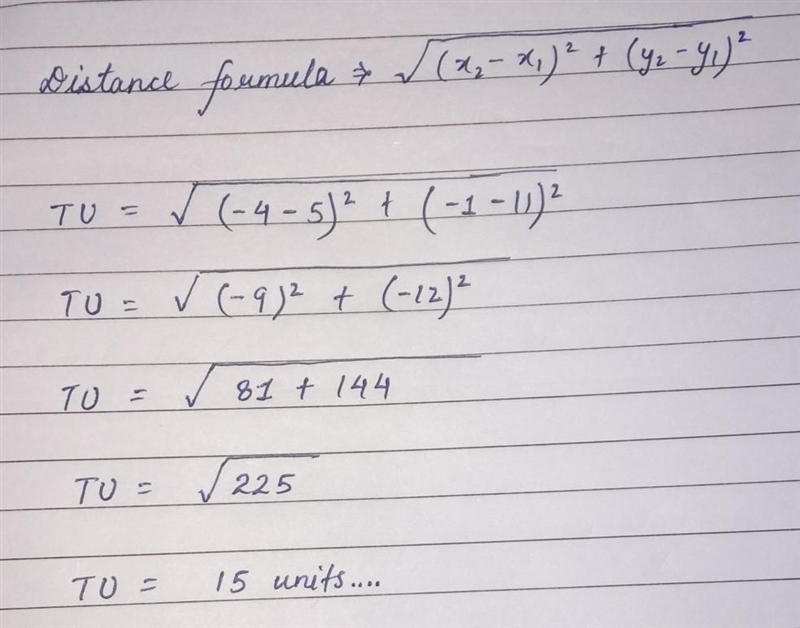 Distance formula ⇒ √(x₂ - x₁)² + (y₂ - y₁)²
TU = √(-4 - 5)² + (-1 - 11)²
TU = √(-9)² + (-12)²
TU = √81 + 144
TU = √225
TU = 15 units....